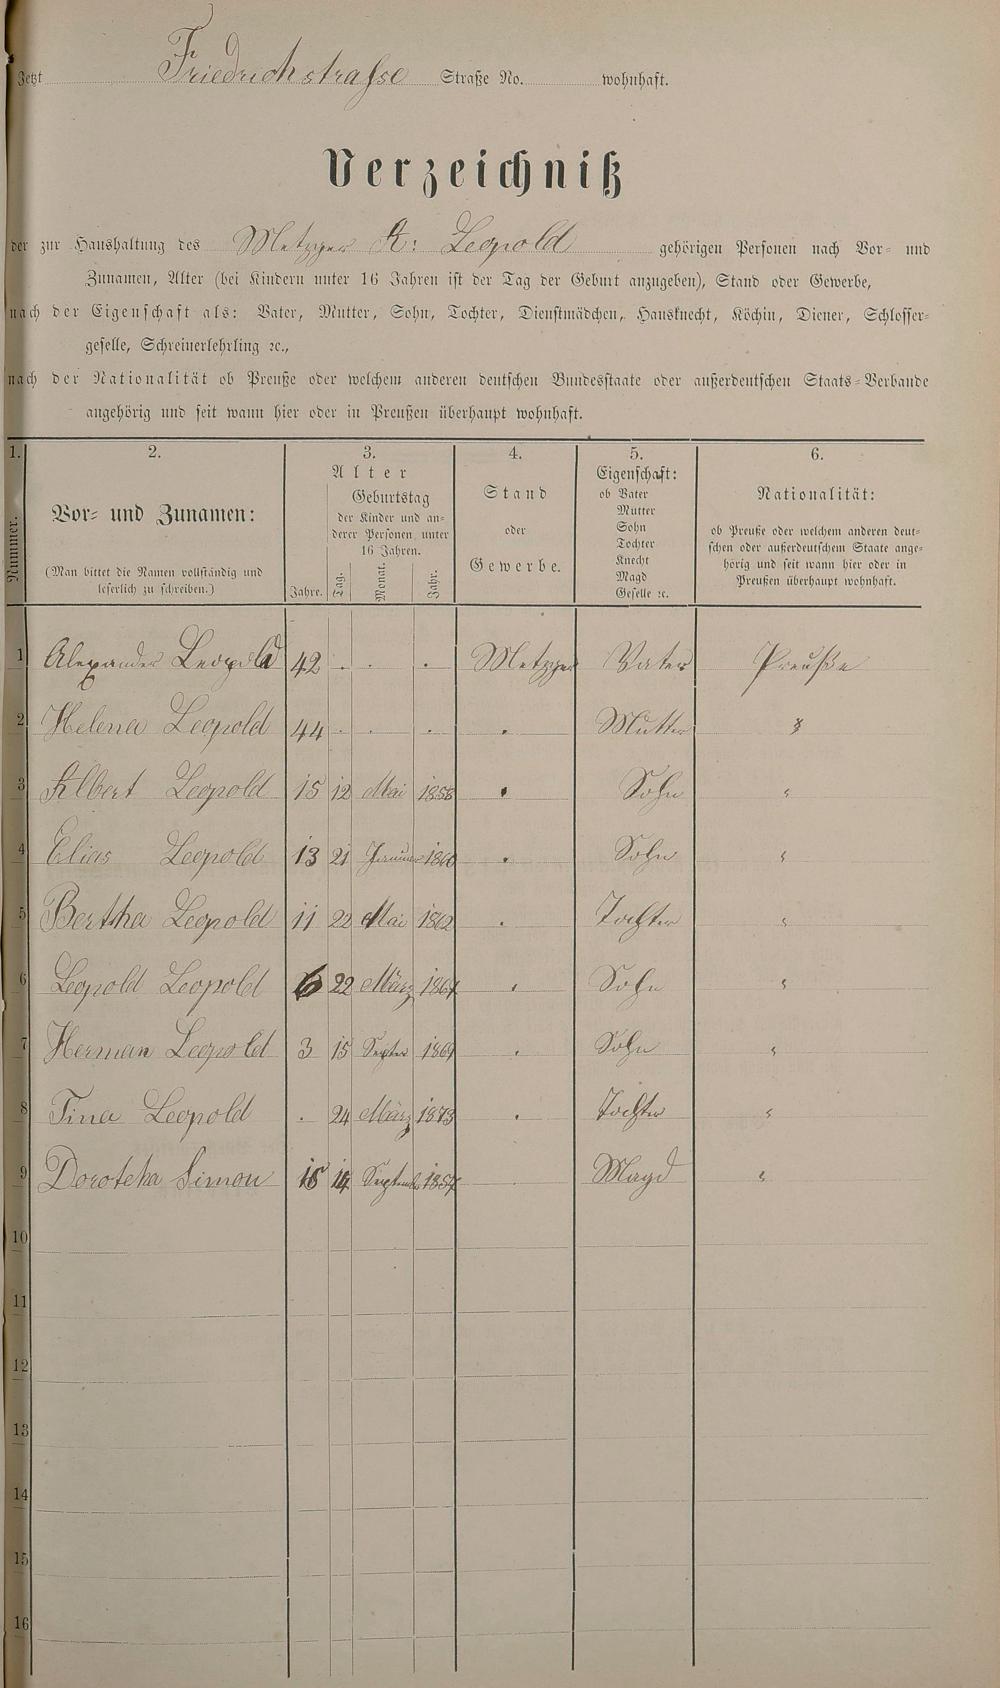 Jetzt Friedrichstrasse Straße No. wohnhaft.
Verzeichniß
der zur Haushaltung des Metzger A: Leopold gehörigen Personen nach Vor- und
Zunamen, Alter (bei Kindern unter 16 Jahren ist der Tag der Geburt anzugeben), Stand oder Gewerbe,
nach der Eigenschaft als: Vater, Mutter, Sohn, Tochter, Dienstmädchen, Hausknecht, Köchin, Diener, Schlosser-
geselle, Schreinerlehrling ꝛc.,
nach der Nationalität ob Preuße oder welchem anderen deutschen Bundesstaate oder außerdeutschen Staats-Verbande
angehörig und seit wann hier oder in Preußen überhaupt wohnhaft.
1. 2. 3. 4. 5. 6.
Nummer.
Vor- und Zunamen:
(Man bittet die Namen vollständig und
leserlich zu schreiben.)
Alter
Jahre.
Geburtstag
der Kinder und an-
derer Personen unter
16 Jahren.
Tag. Monat. Jahr.
Stand
oder
Gewerbe.
Eigenschaft:
ob Vater
Mutter
Sohn
Tochter
Knecht
Magd
Geselle ꝛc.
Nationalität:
ob Preuße oder welchem anderen deut-
schen oder außerdeutschem Staate ange-
hörig und seit wann hier oder in
Preußen überhaupt wohnhaft.
1 Alexander Leopold 42 . . . Metzger Vater Preuße
2 Helena Leopold 44 . . . . Mutter "
3 Albert Leopold 15 12 Mai 1858 . Sohn "
4 Elias Leopold 13 21 Januar 1860 . Sohn "
5 Bertha Leopold 11 22 Mai 1862 . Tochter "
6 Leopold Leopold 6 22 März . Sohn "
7 Herman Leopold 3 15 Septer 1869 . Sohn "
8 Tina Leopold . 24 März 1873 . Tochter "
9 Doroteha Simon 14 September Magd "
10
11
12
13
14
15
16